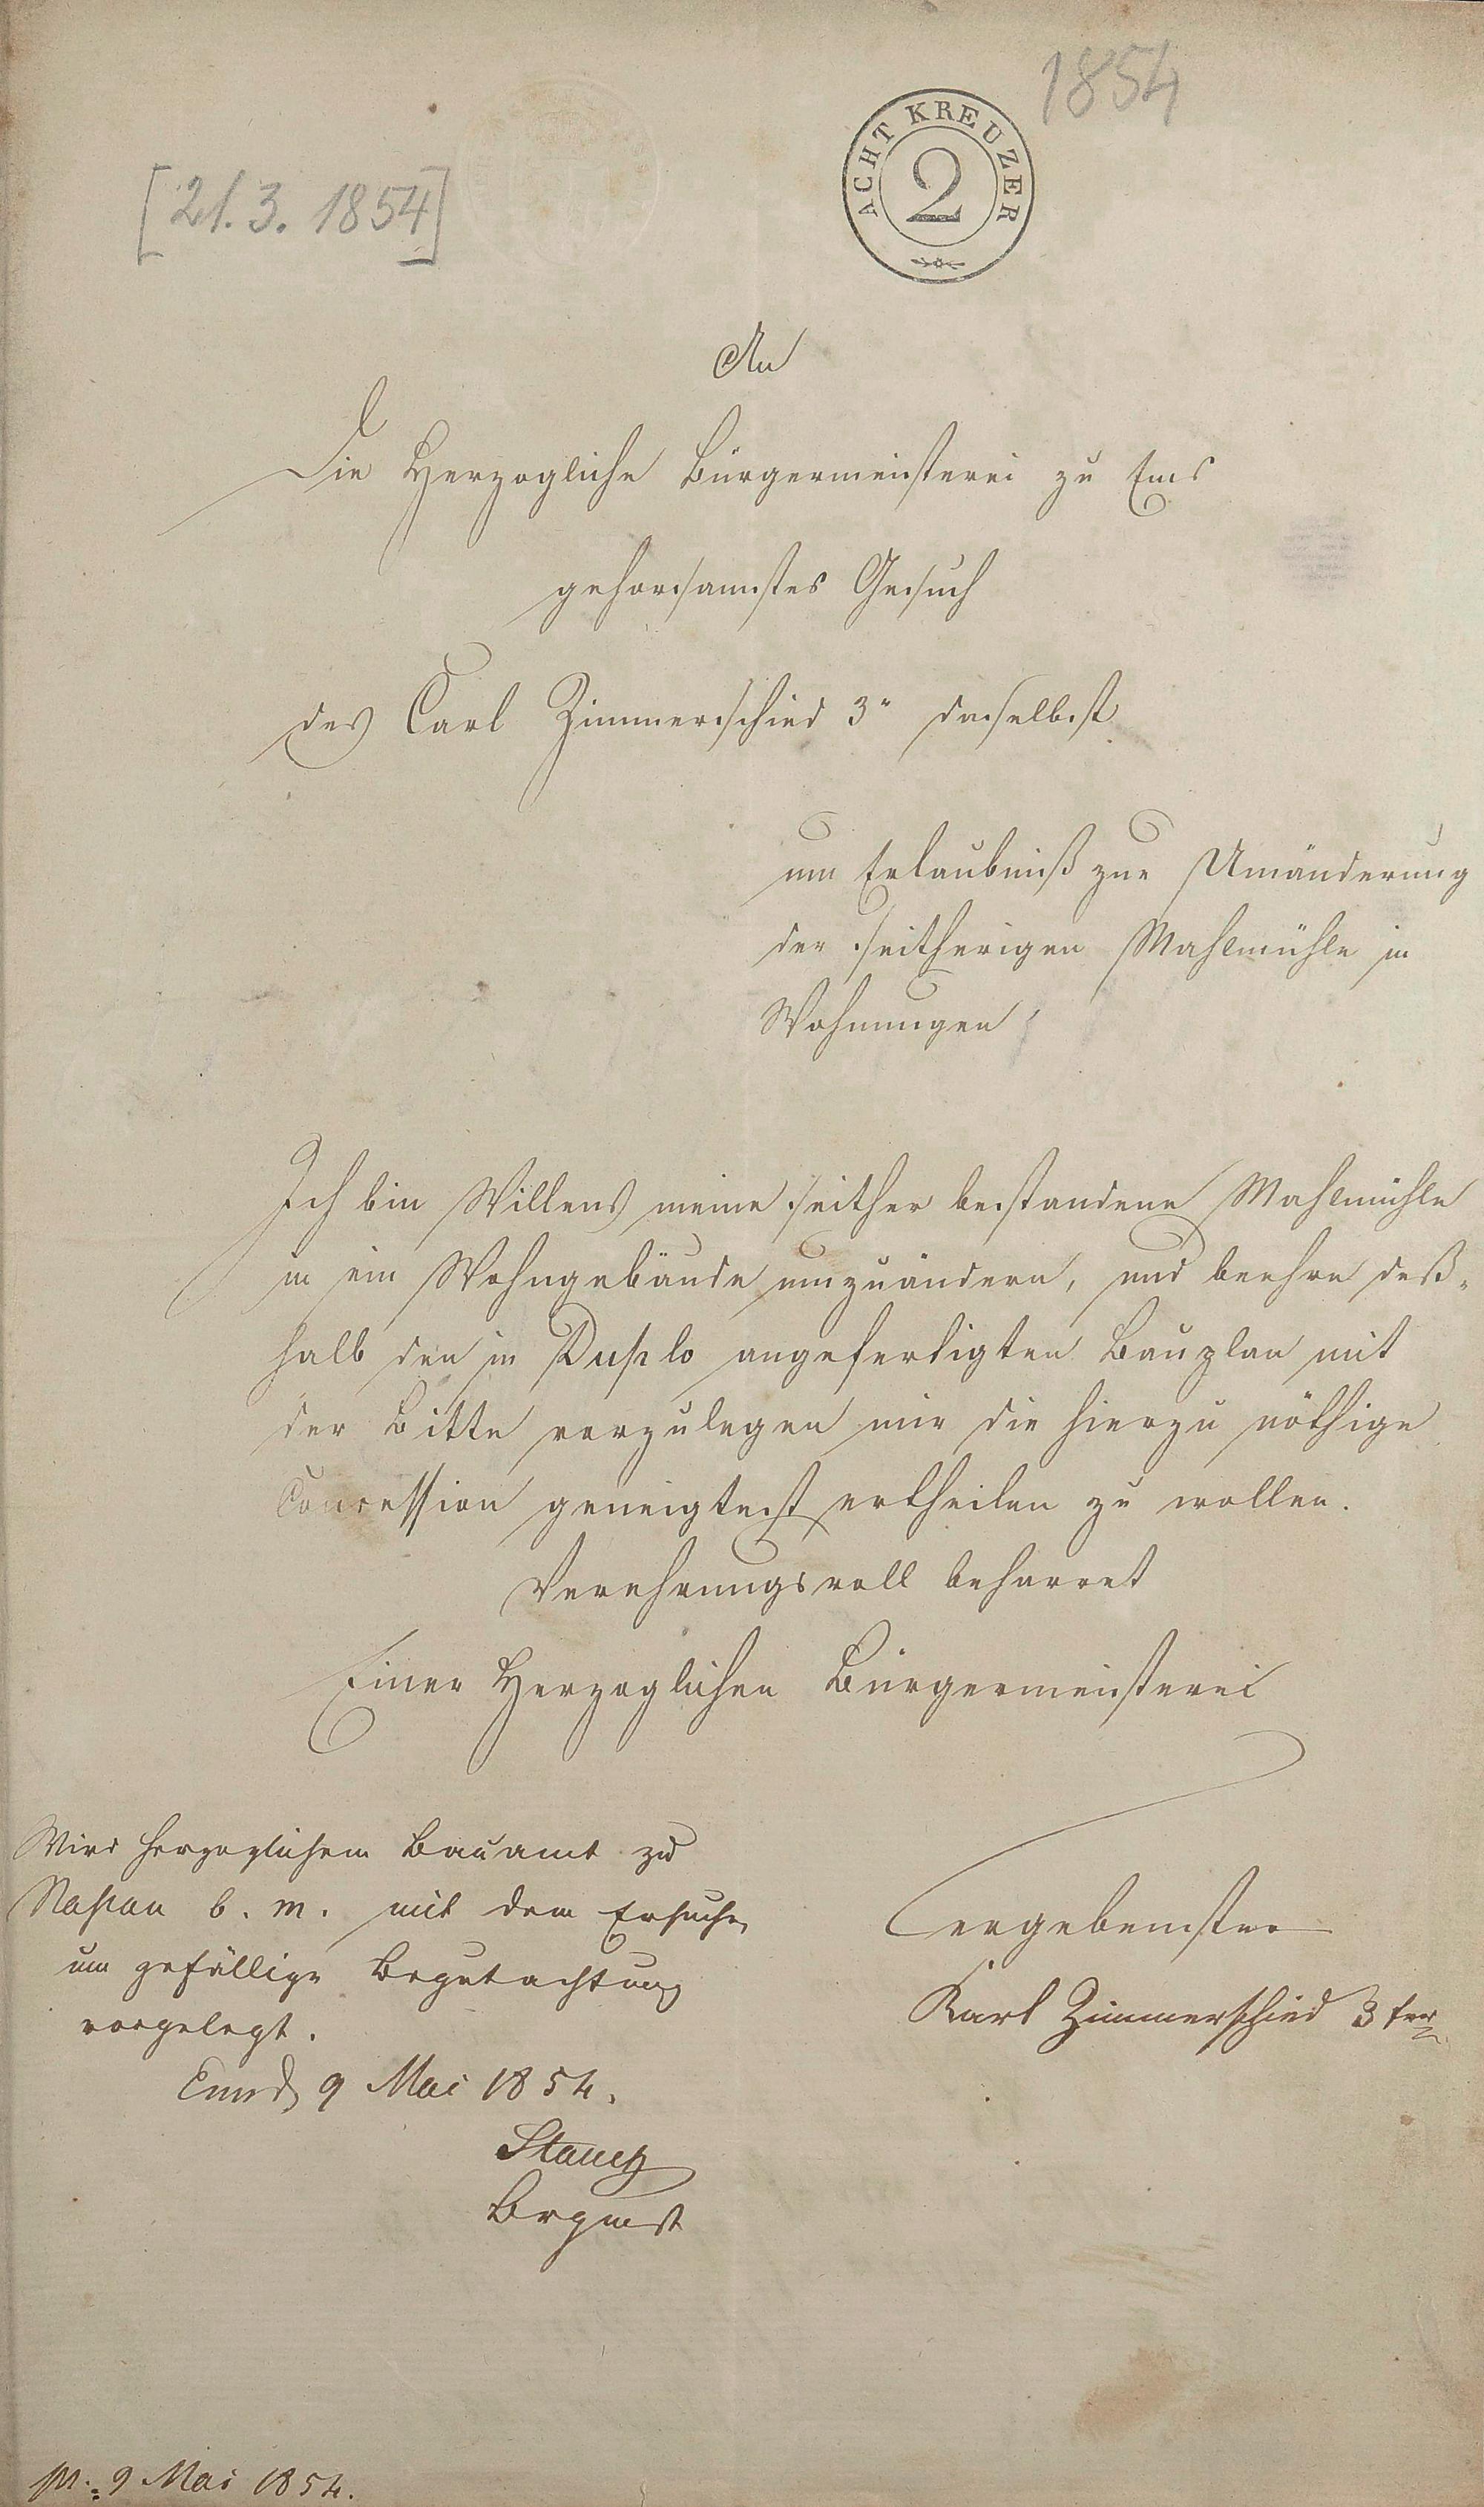 1854
[21. 3. 1854]
ACHT KREUZER
2
An
Die Herzogliche Bürgermeisterei zu Ems
gehorsamstes Gesuch
des Carl Zimmerschied 3" daselbst
um Erlaubniß zur Umänderung
der seitherigen Mahlmühle in
Wohnungen
Ich bin Willens meine seither bestandene Mahlmühle
in ein Wohngebäude umzuändern, und beehre deß-
halb den in Duplo angefertigten Bauplan mit
der Bitte vorzulegen mir die hierzu nöthige
Concession geneigtest ertheilen zu wollen.
Verehrungsvoll beharret
Einer Herzoglichen Bürgermeisterei
ergebenster
Karl Zimmerschied 3ter
Wird herzoglichem Bauamt zu
Nassau b. m. mit dem Ersuchen
um gefällige Begutachtung
vorgelegt.
Ems d 9 Mai 1854.
pr. 9 Mai 1854.